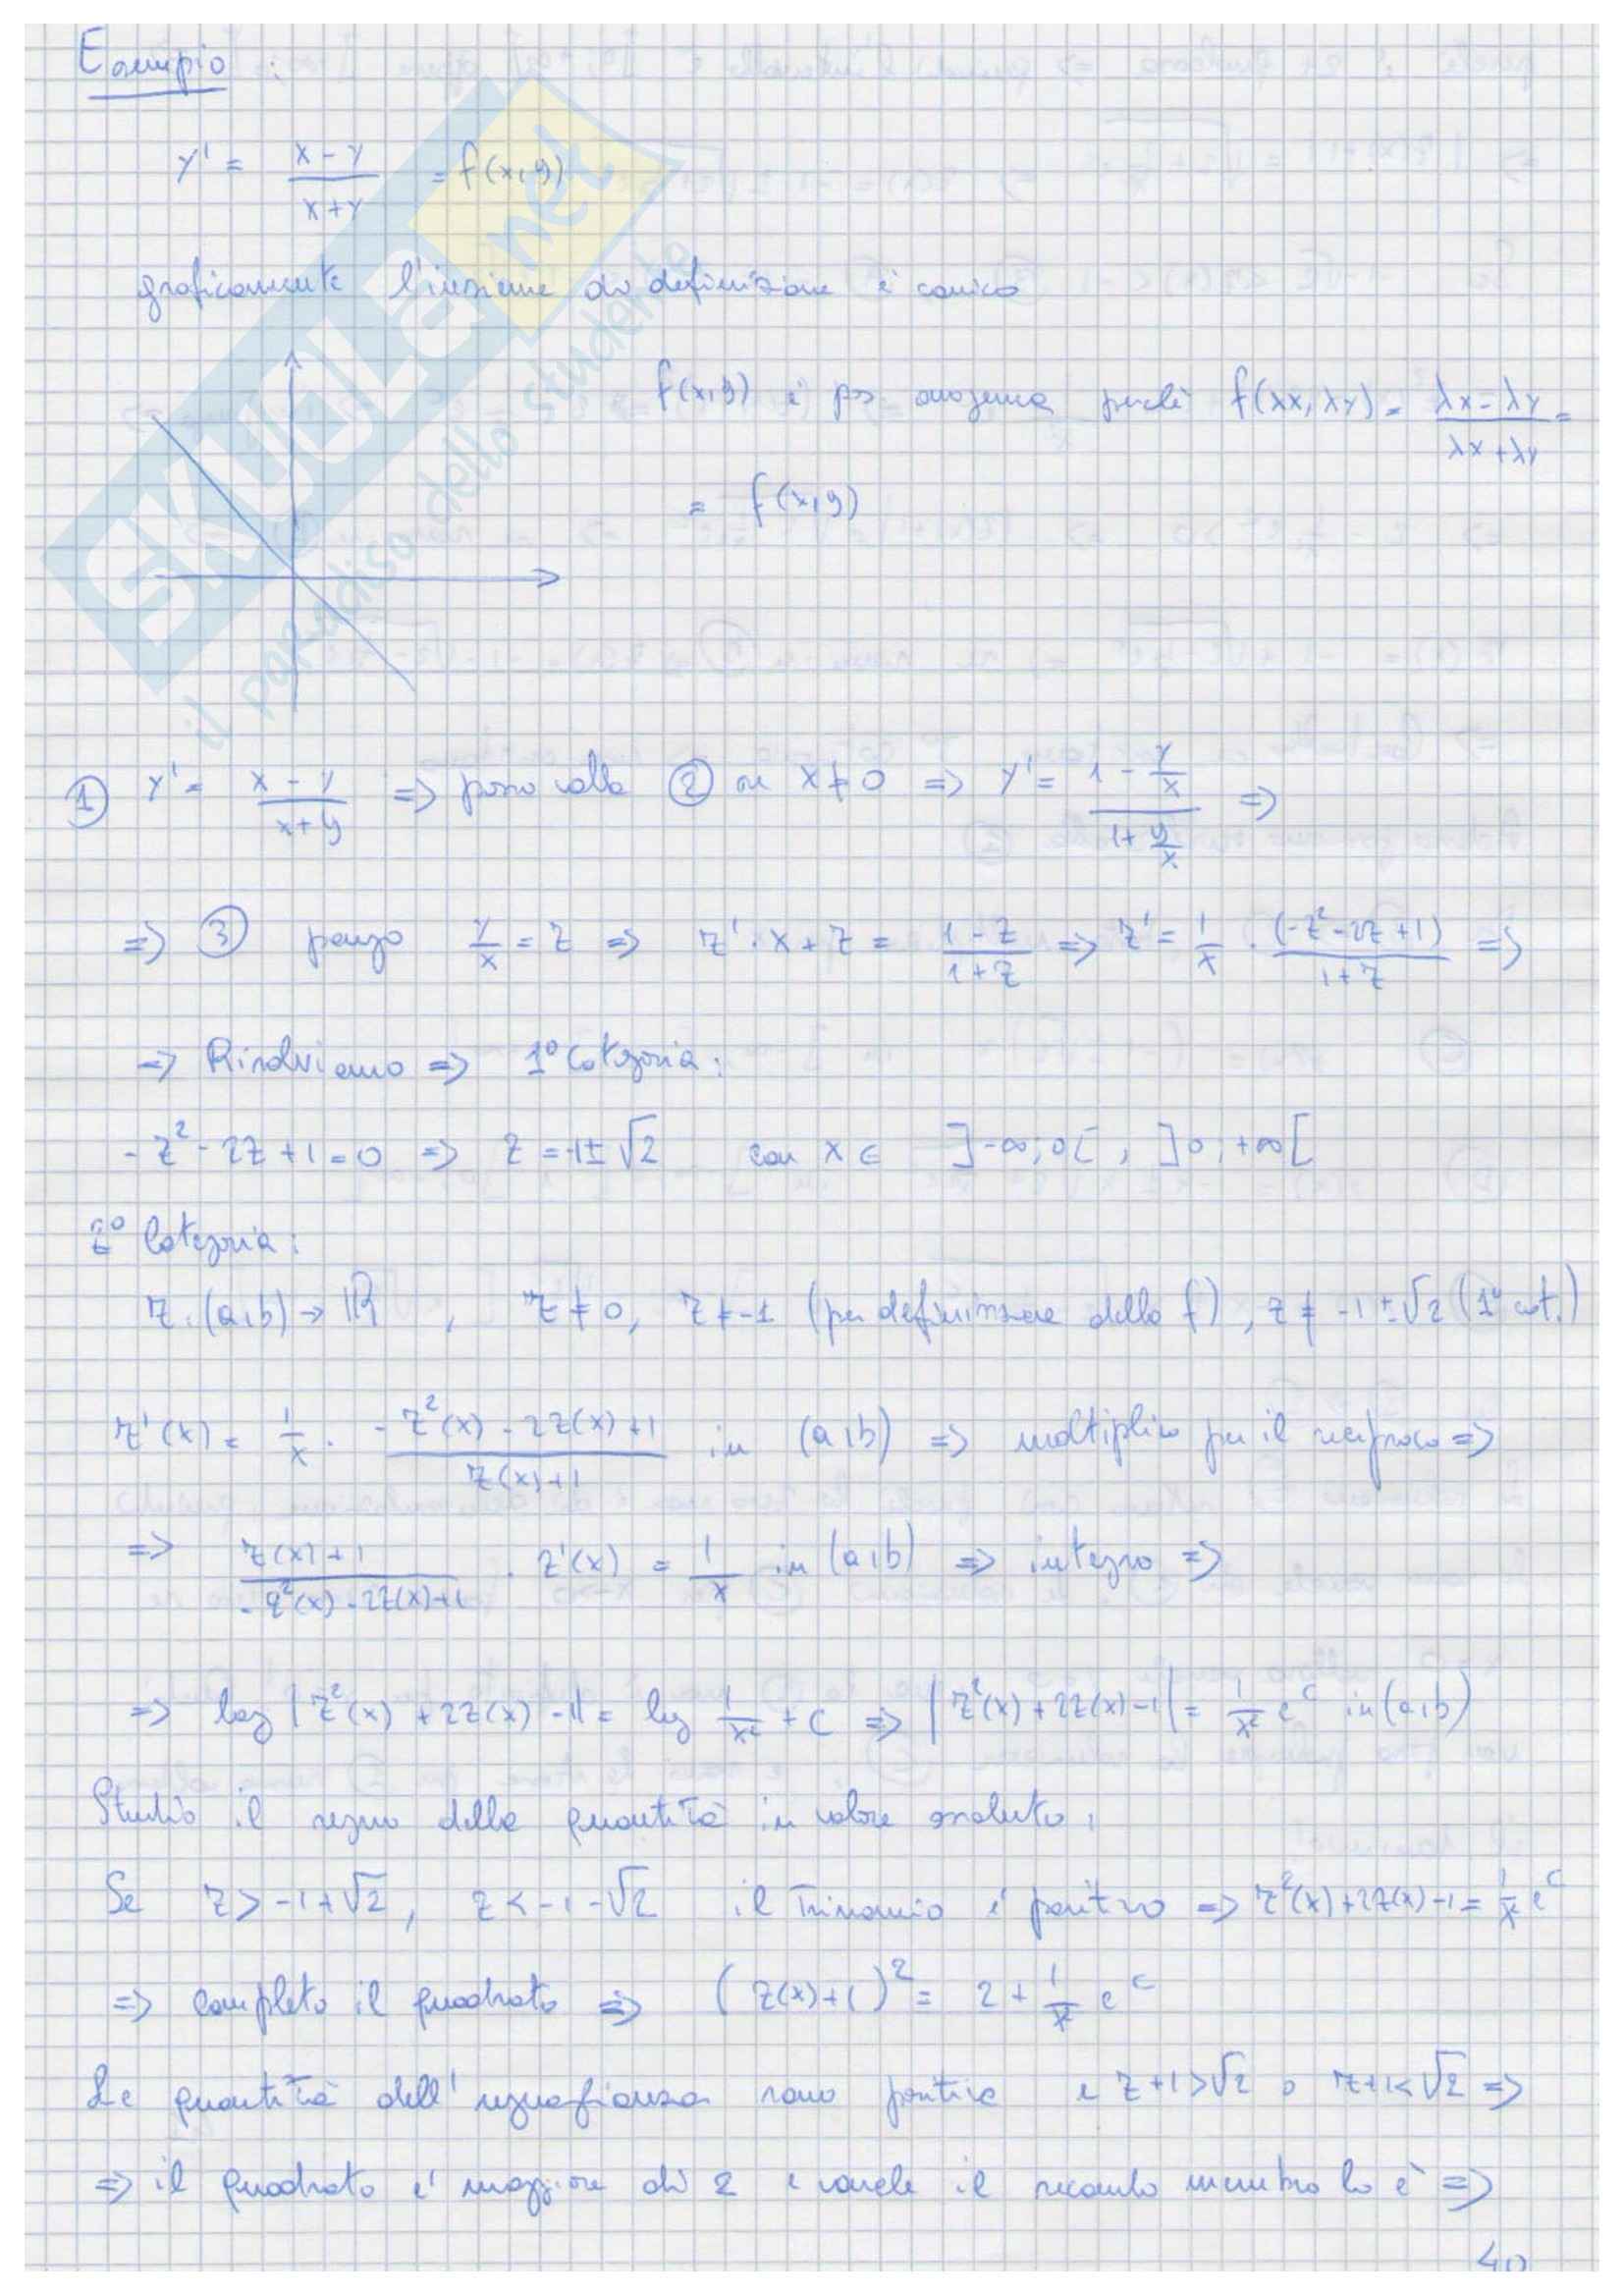 Esempio :
y' = x-y / x+y = f(x,y)
graficamente l'insieme di definizione è conico
f(x,y) è pos omogenea perchè f(λx, λy) = λx-λy / λx+λy =
= f(x,y)
① y' = x-y / x+y => passo alla ② se x≠0 => y' = 1 - y/x / 1 + y/x =>
=> ③ pongo y/x = z => z'·x + z = 1-z / 1+z => z' = 1/x · (-z²-2z+1) / 1+z =>
=> Risolviamo => 1° Categoria:
-z²-2z+1=0 => z = -1±√2 con x ∈ ]-∞;0[ , ]0;+∞[
2° Categoria:
z:(a,b)→ℝ , z≠0, z≠-1 (per definizione della f), z≠ -1±√2 (1° cat.)
z'(x) = 1/x · -z²(x)-2z(x)+1 / z(x)+1 in (a,b) => moltiplico per il reciproco =>
=> z(x)+1 / -z²(x)-2z(x)+1 · z'(x) = 1/x in (a,b) => integro =>
=> log |z²(x)+2z(x)-1| = log 1/x² + c => |z²(x)+2z(x)-1| = 1/x² e^c in (a,b)
Studio il segno della quantità in valore assoluto:
Se z>-1+√2, z<-1-√2 il trinomio è positivo => z²(x)+2z(x)-1 = 1/x² e^c
=> completo il quadrato => (z(x)+1)² = 2 + 1/x² e^c
Le quantità dell'uguaglianza sono positive e z+1>√2 o z+1<√2 =>
=> il quadrato è maggiore di 2 e anche il secondo membro lo è =>
40
SKUOLA.net
il paradiso dello studente